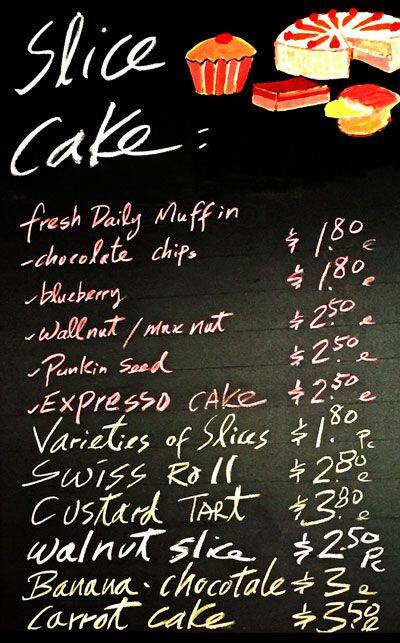 Slice
Cake :
fresh Daily Muffin
- chocolate chips $1.80 e
- blueberry $1.80 e
- wallnut / mux nut $2.50 e
- Punkin Seed $2.50 e
- EXPRESSO CAKE $2.50 e
Varieties of Slices $1.80 Pc
SWISS Roll $2.80 e
Custard TART $3.80 e
walnut slice $2.50 Pc
Banana . chocotale $3 e
Carrot cake $3.50 e